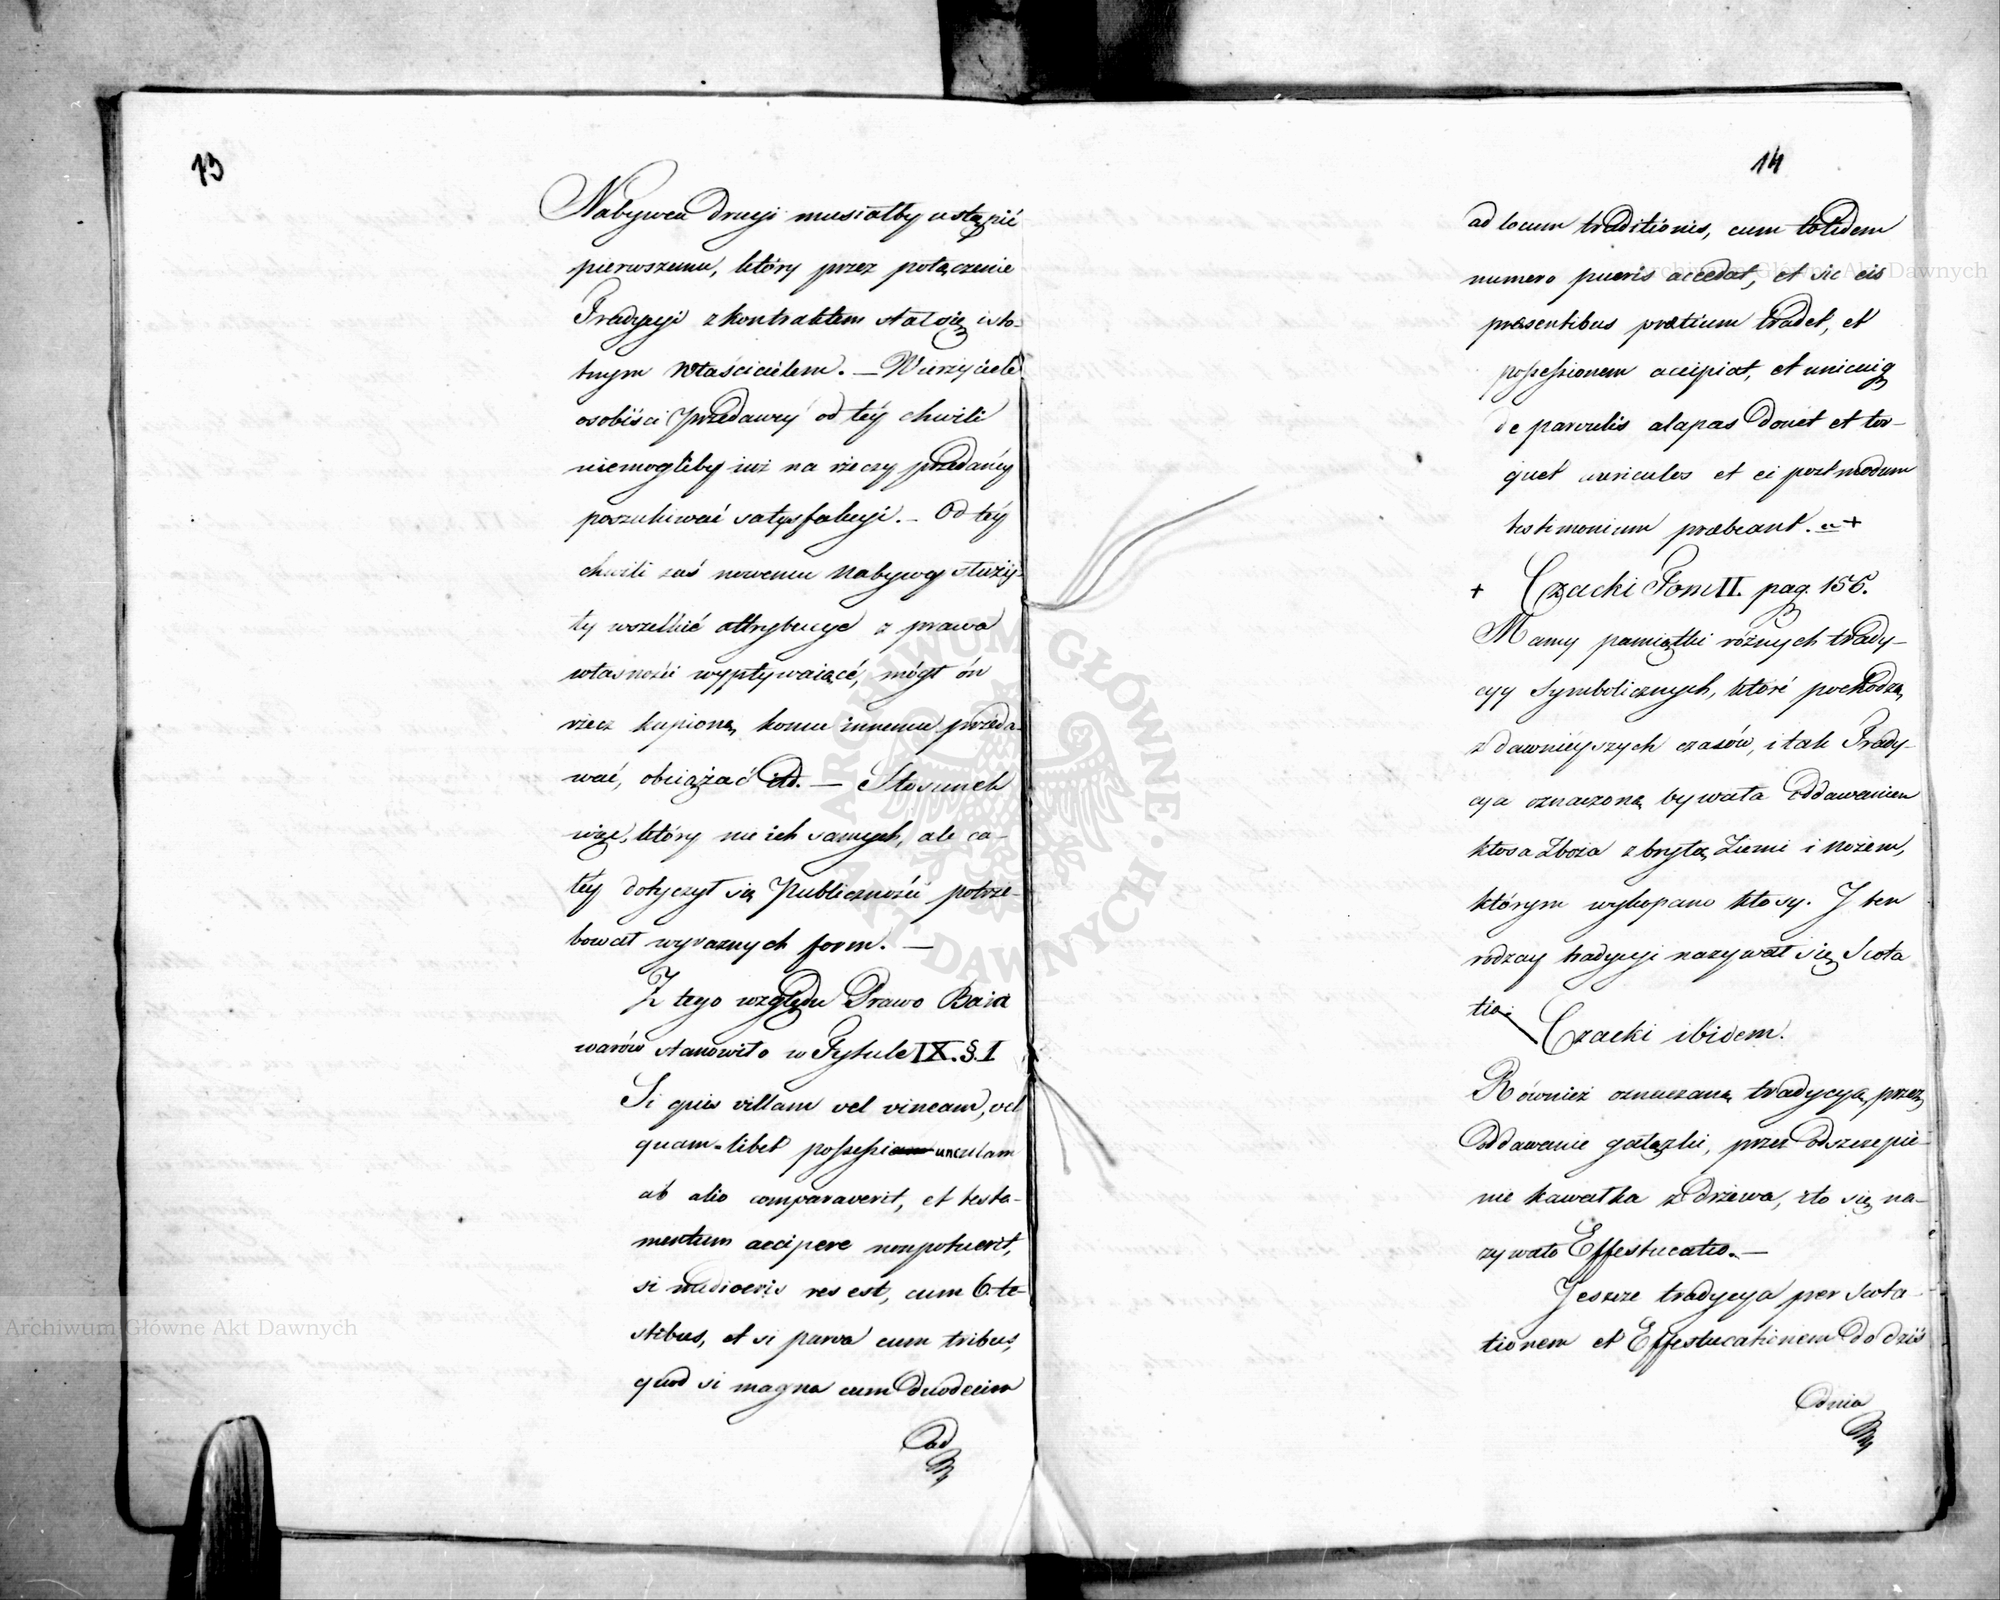 13
Nabywca drugi musiałby ustąpić
pierwszemu, który przez połączenie
Tradycyi z kontraktem stał się isto-
tnym właścicielem. — Wierzyciele
osobiści Przedawcy od téy chwili
niemogliby iuż na rzeczy przedanéy
poszukiwać satysfakcyi. — Od téy
chwili zaś nowemu nabywcy służy-
ły wszelkié attrybucye z prawa
własności wypływaiącé, mógł ón
rzecz kupioną komu innemu przeda-
wać, obciążać itd. — Stosunek
więc, który nie ich samych, ale ca-
łéy dotyczył się Publiczności potrze-
bował wyraznych form. —
Z tego względu Prawo Baia
warów stanowiło w Tytule IX. §. I
Si quis villam vel vineam, vel
quam-libet possessiunculam
ab alio comparaverit, et testa-
mentum accipere non potuerit,
si mediocris res est, cum 6. te-
stibus, et si parva cum tribus,
quod si magna cum duodecim
ad
14
ad locum traditionis, cum totidem
numero pueris accedat, et sic eis
præsentibus prætium tradet, et
possessionem accipiat, et unicuiq
de parvulis alapas donet et tor-
quet auriculos et ei postmodum
testimonium præbeant. a +
+ Czacki Tom II. pag. 156.
Mamy pamiątki różnych trady-
cyy Symbolicznych, któré pochodzą
z dawnieyszych czasów, i tak Trady-
cya oznaczoną bywała oddawaniem
kłosa Zboża z bryłą Ziemi i nożem,
którym wykopano kłosy. I ten
rodzay tradycyi nazywał się Scota
tio.
Czacki ibidem.
Również oznaczaną tradycyą przez
oddawanie gałązki, przez odszczepie-
nie kawałka z drzewa, i to się na-
zywało Effestucatio. —
Jeszcze tradycya per Scota-
tionem et Effestucationem do dziś
dnia
Archiwum Główne Akt Dawnych
Archiwum Główne Akt Dawnych
ARCHIWUM GŁÓWNE AKT DAWNYCH